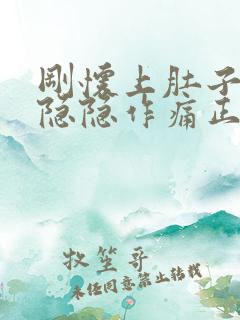 刚怀上肚子
隐隐作痛正
牧笙哥
未经同意禁止转载